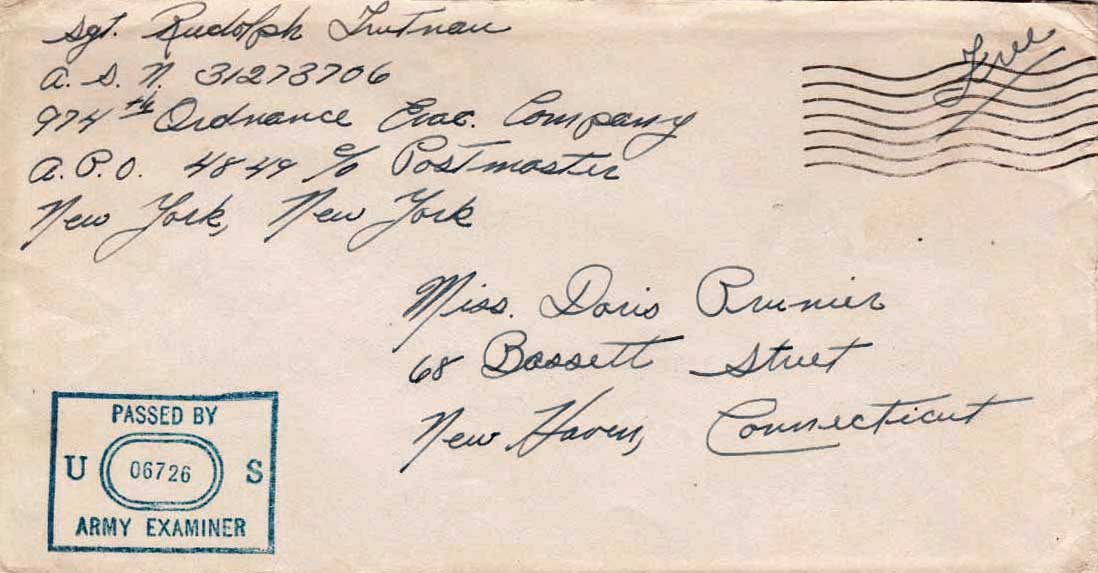 Sgt. Rudolph Trutnau
A. S. N. 31273706
974th Ordnance Evac. Company
A.P.O. 4849 c/o Postmaster
New York, New York
Free
Miss. Doris Prunier
68 Bassett Street
New Haven, Connecticut
PASSED BY
U 06726 S
ARMY EXAMINER